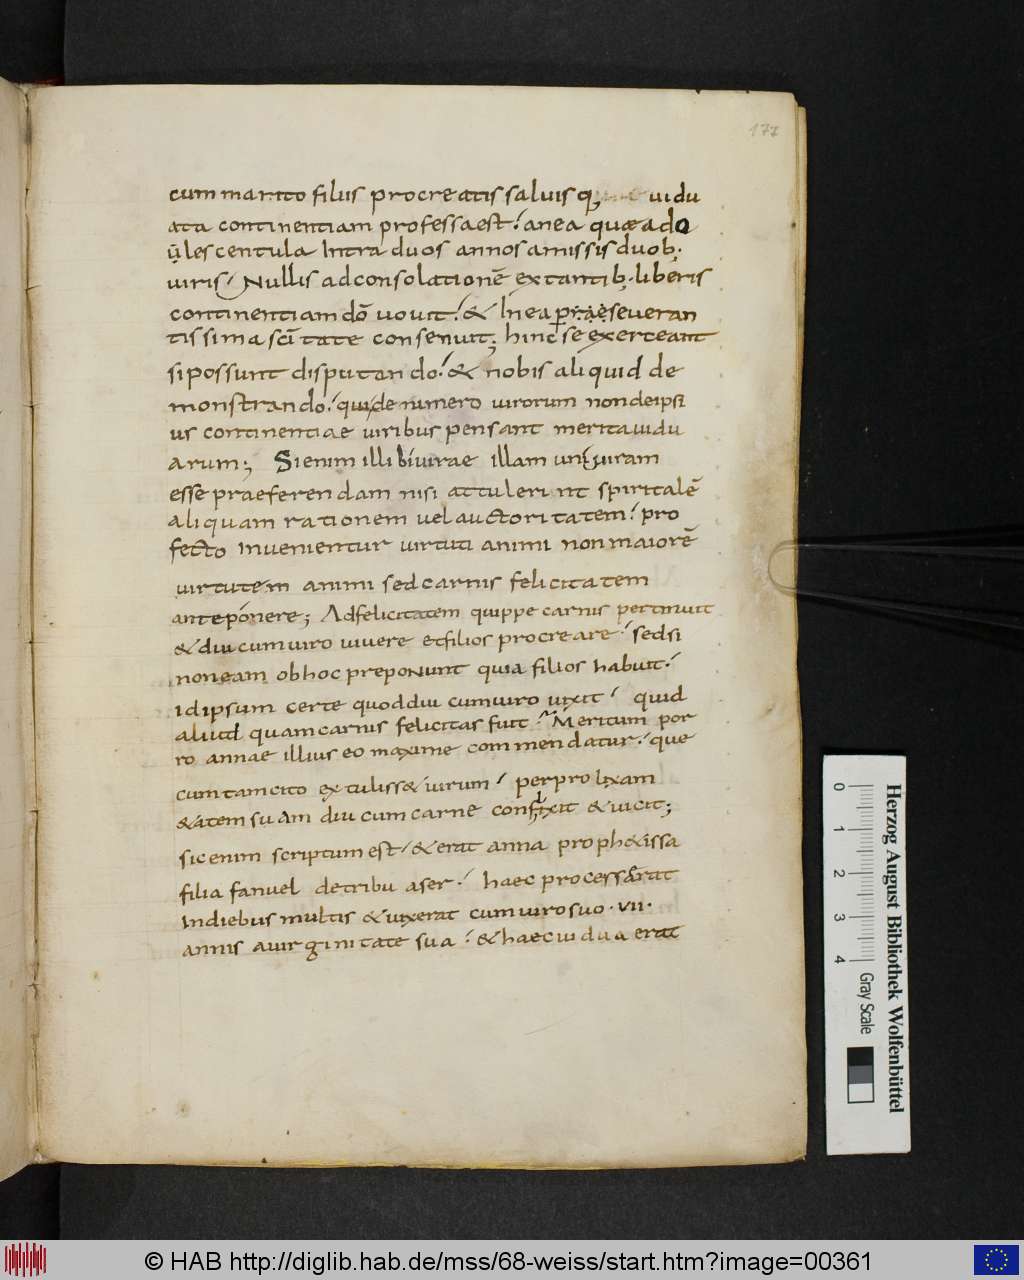 177
cum marito filiis procreatis saluis q; uidu
ata continentiam professa est; an ea quae ado
lescentula Intra duos annos amissis duob;
uiris; Nullis ad consolationē extantib; liberis
continentiam dō uouit; & In ea perseueran
tissima scītate consenuit; hinc se exerceant
si possunt disputando; & nobis aliquid de
monstrando; qui de numero uirorum non de ipsi
us continentiae uiribus pensant merita uidu
arum; Si enim illi biuirae illam uniuiram
esse praeferendam nisi attulerint spiritalē
aliquam rationem uel auctoritatem; pro
fecto inuenientur uirtuti animi non maiorē
uirtutem animi sed carnis felicitatem
anteponere; Ad felicitatem quippe carnis pertinuit
& diu cum uiro uiuere et filios procreare; sed si
non eam ob hoc preponunt quia filios habuit;
id ipsum certe quod diu cum uiro uixit; quid
aliud quam carnis felicitas fuit; Meritum por
ro annae illius eo maxime commendatur; que
cum tam cito extuliss& uirum; per prolixam
&atem suam diu cum carne conflixit & uicit;
sic enim scriptum est; & erat anna proph&issa
filia fanuel de tribu aser; haec processerat
In diebus multis & uixerat cum uiro suo · vii ·
annis a uirginitate sua; & haec uidua erat
0 1 2 3 4
Gray Scale
Herzog August Bibliothek Wolfenbüttel
© HAB http://diglib.hab.de/mss/68-weiss/start.htm?image=00361